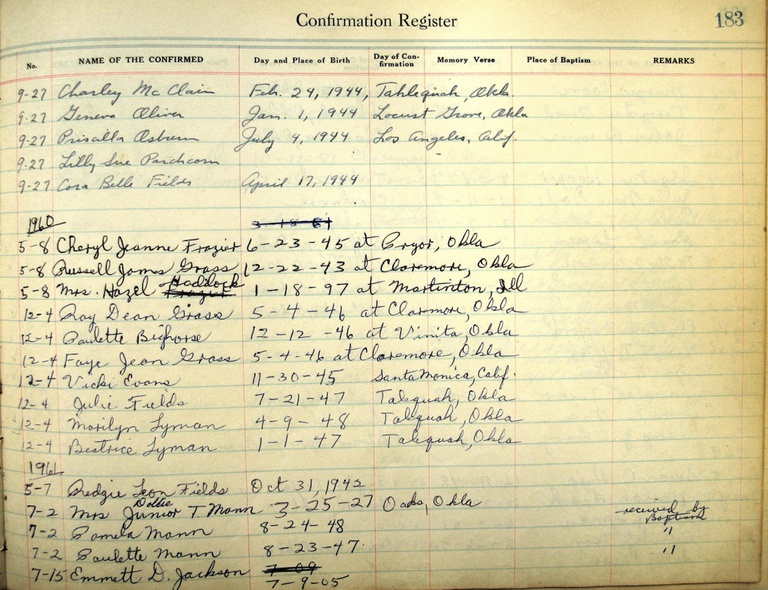 Confirmation Register 183
No. NAME OF THE CONFIRMED Day and Place of Birth Day of Confirmation Memory Verse Place of Baptism REMARKS
9-27 Charley McClain Feb. 24, 1944, Tahlequah, Okla.
9-27 Geneva Oliver Jan. 1, 1944 Locust Grove, Okla
9-27 Priscilla Osburn July 4, 1944 Los Angeles, Calif.
9-27 Lilly Sue Parchcorn
9-27 Cora Belle Fields April 17, 1944
1960 3-18-61
5-8 Cheryl Jeanne Frazier 6-23-45 at Pryor, Okla
5-8 Russell James Grass 12-22-43 at Claremore, Okla
Haddock
5-8 Mrs. Hazel Frazier 1-18-97 at Martinton, Ill
12-4 Ray Dean Grass 5-4-46 at Claremore, Okla
12-4 Paulette Bighorse 12-12-46 at Vinita, Okla
12-4 Faye Jean Grass 5-4-46 at Claremore, Okla
12-4 Vicki Evans 11-30-45 Santa Monica, Calif.
12-4 Julie Fields 7-21-47 Talequah, Okla
12-4 Marilyn Lyman 4-9-48 Talequah, Okla
12-4 Beatrice Lyman 1-1-47 Talequah, Okla
1961
5-7 Redgie Leon Fields Oct 31, 1942
Dollie
7-2 Mrs Junior T. Mann 3-25-27 Oaks, Okla received by Baptism
7-2 Pamela Mann 8-24-48 "
7-2 Paulette Mann 8-23-47 "
7-15 Emmett D. Jackson 7-09
7-9-05